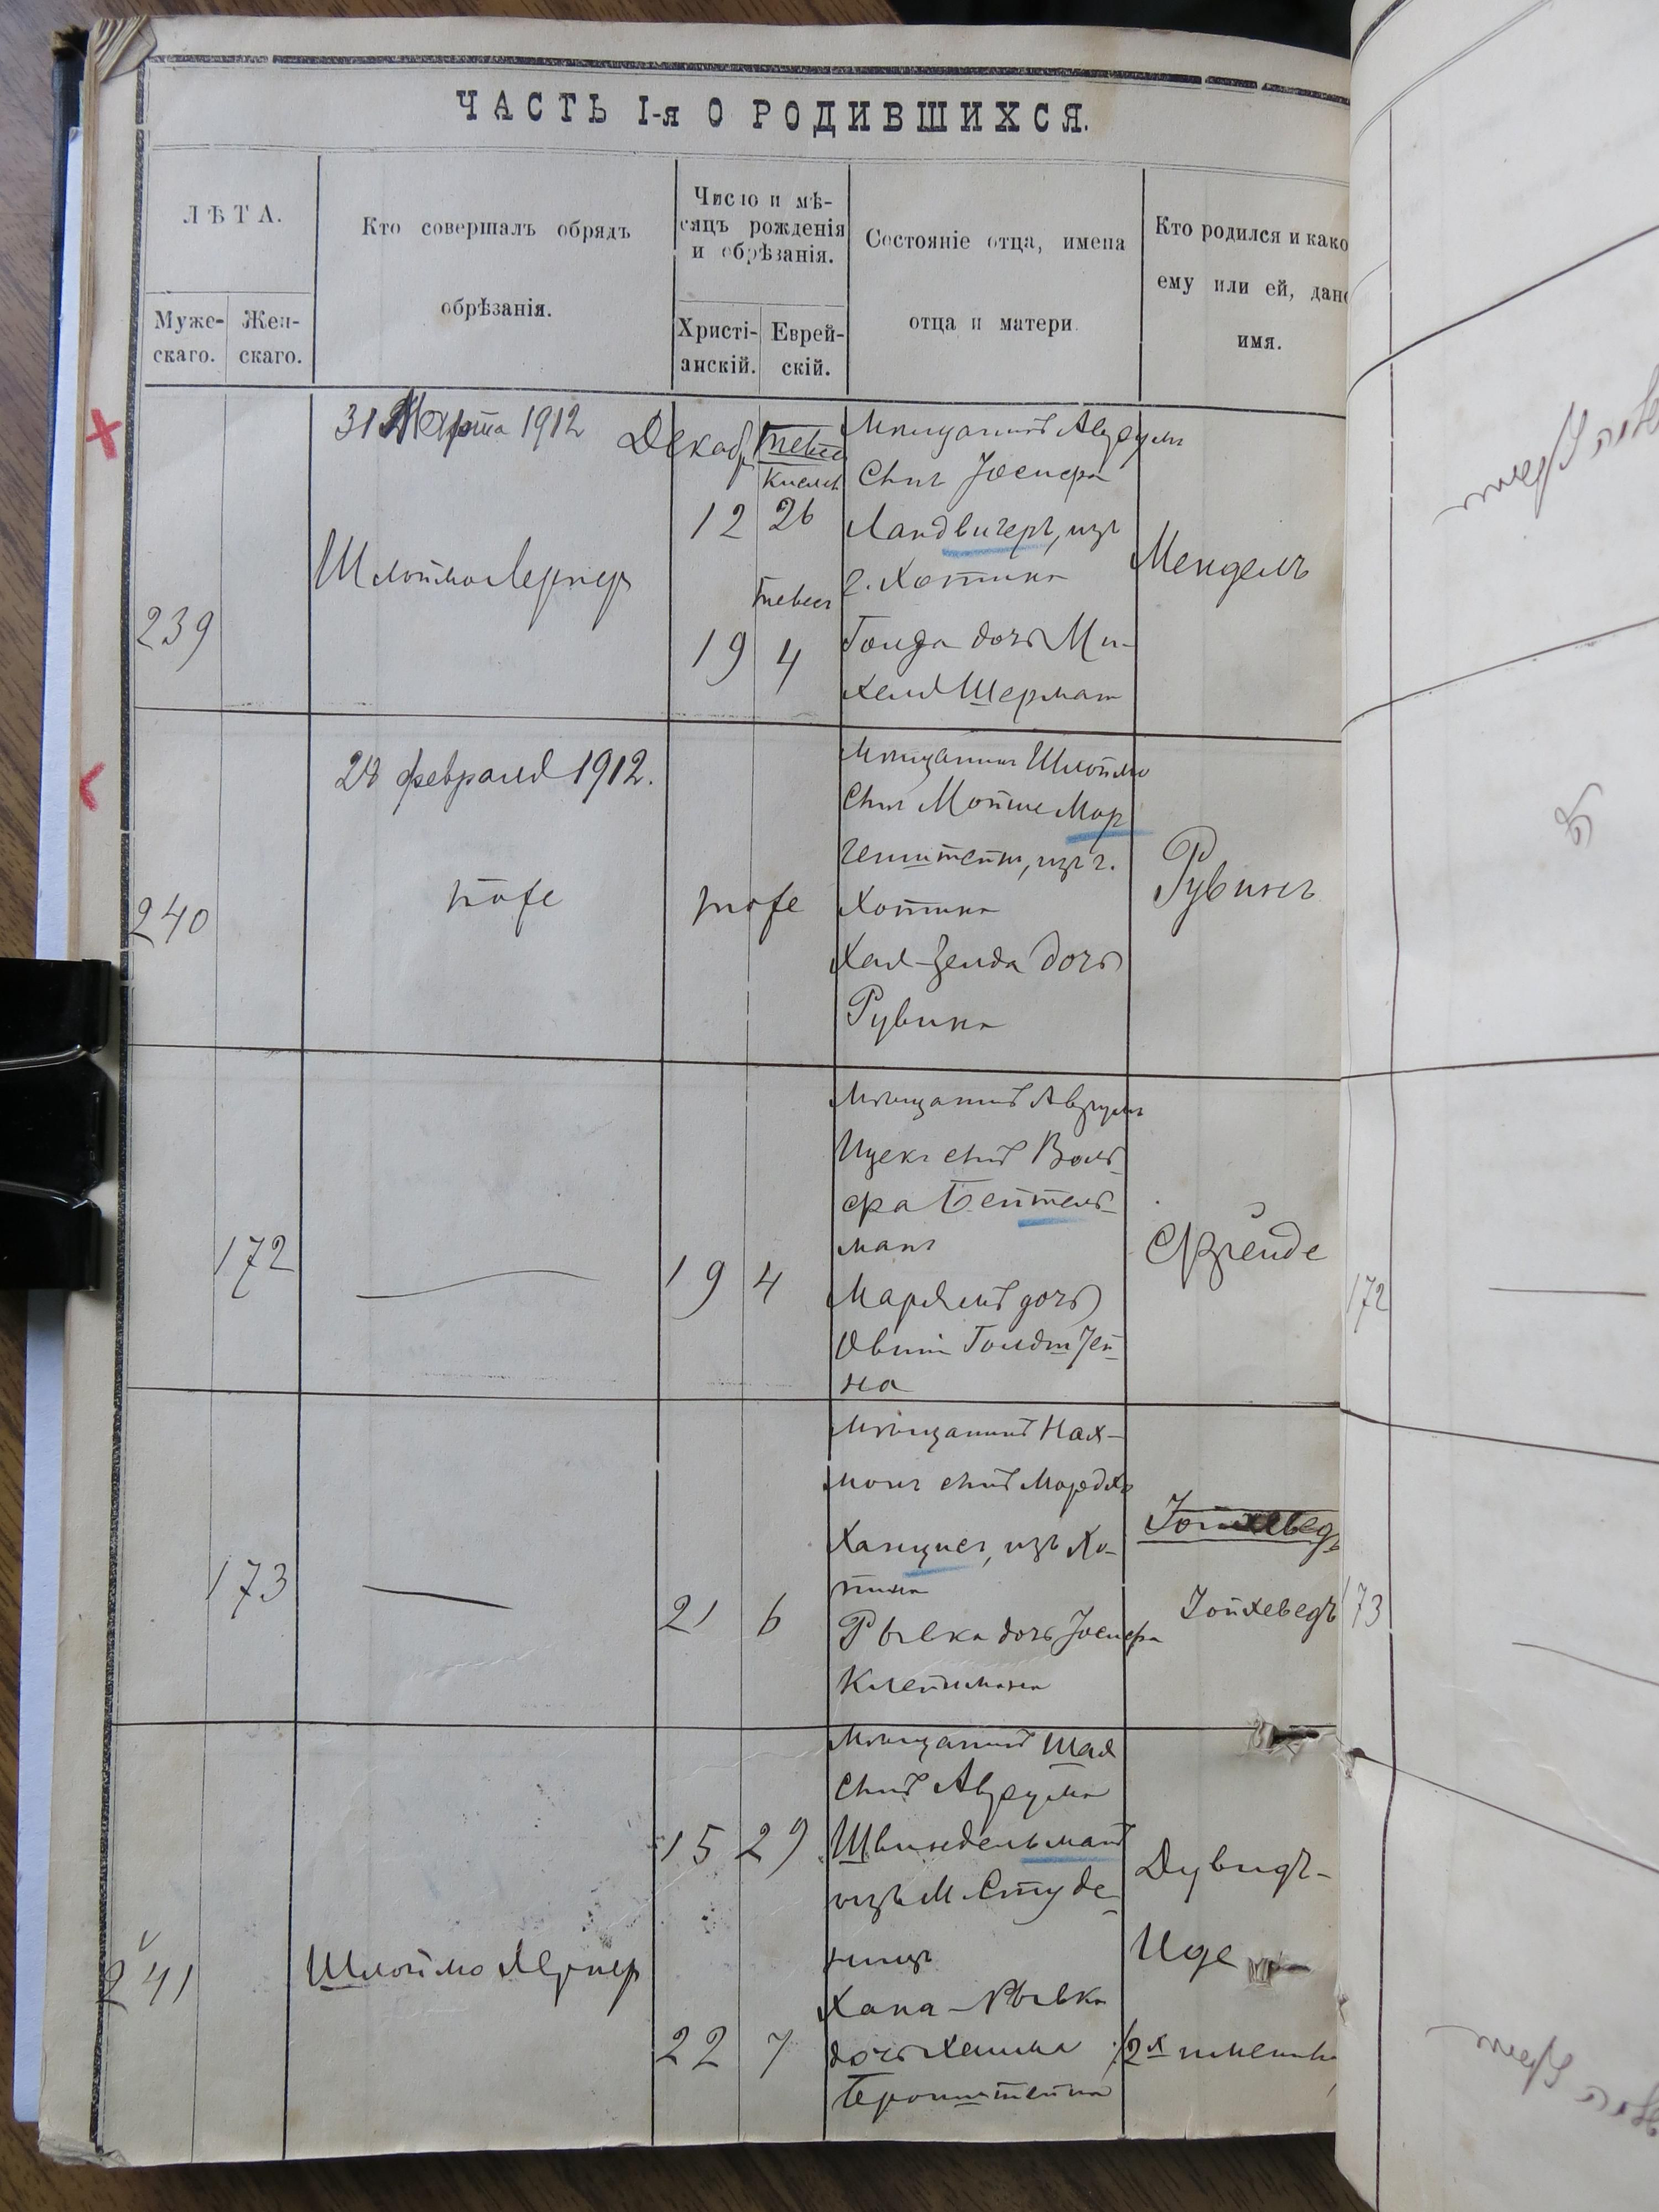 ЧАСТЬ I-я О РОДИВШИХСЯ.
ЛѢТА.
Муже-
скаго.
Жен-
скаго.
Кто совершалъ обрядъ
обрѣзанія.
Число и мѣ-
сяцъ рожденія
и обрѣзанія.
Христі-
анскій.
Еврей-
скій.
Состояніе отца, имена
отца и матери.
Кто родился и како
ему или ей, дано
имя.
239
31 Марта 1912
Шлоймо Лернер
Декабр
Тевес
Кислев
12 26
Тевес
19 4
Мещанинъ Аврумъ
Сынъ Йосифа
Ландвигеръ, изъ
г. Хотина
Голда дочь Ми-
хеля Шерман
Мендель
240
28 февраля 1912.
тоже
тоже
Мещанинъ Шлоймо
Сынъ Мойше Мор
генштейнъ, изъ г.
Хотина
Хая-Зелда дочь
Рувина
Рувинъ
172
19 4
Мещанинъ Аврумъ
Ицекъ сынъ Воль-
фа Бейтель-
манъ
Марьямъ дочь
Овшiи Голдштей-
на
Фрейде
172
173
21 6
Мещанинъ Нах-
манъ сынъ Мордхо
Ханцисъ, изъ Хо-
тина
Рывка дочь Йосифа
Клейнмана
Іойхеведъ
Іойхеведъ
173
241
Шлоймо Лернер
15 29
22 7
Мещанинъ Шая
Сынъ Аврума
Швиндельманъ
изъ м. Студе-
ницъ
Хана-Рывка
дочь Хаима
Бронштейна
Дувидъ-
Иде
/2х именны